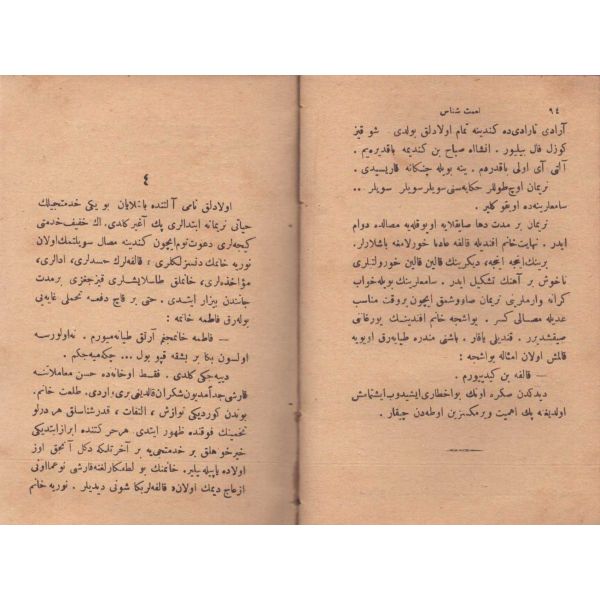 ٩٤
نعمت شناس
آرادی تارادی‌ده کندینه تمام اولادلق بولدی . شو قیز
کوزل فال بیلیور . انشاالله صباح بن کندیمه باقدیره‌یم .
آلتی آی اولی باقدردم . ینه بویله چنکانه قاریسیدی .
نریمان اوچ طوللر حکایه‌سنی سویلر سویلر سویلر ..
سامعلرینه‌ده اویقو کلیر .
نریمان بر مدت دها صایقلایه اویوقلایه مصالده دوام
ایدر . نهایت خانم افندیله قالفه عادتا خورلامغه باشلارلر .
برینك اینجه اینجه، دیکرینك قالین قالین خورولتلری
ناخوش بر آهنك تشکیل ایدر . سامعلرینك بویله خواب
کرانه وارملرینی نریمان صاووشمق ایچون بر وقت مناسب
عدیله مصالی کسر . یواشجه خانم افندینك یورغانی
صیقشدیرر . قندیلی یاقار . باشنی مندره طیایه‌رق اویویه
قالمش اولان امثاله یواشجه :
— قالفه بن کیدییورم .
دیدکدن صکره اونك بو اخطاری ایشیدوب ایشتمامش
اولدیغنه پك اهمیت ویرمکسزین اوطه‌دن چیقار .
٤
اولادلق نامی آلتنده باشلایان بو یکی خدمتجیلك
حیاتی نریمانه ابتدالری پك آغیر کلدی . اك خفیف خدمتی
کیجه‌لری دعوت نوم ایچون کندینه مصال سویلتمك اولان
نوریه خانمك دلسزلکلری ، قالفه‌لرك حسدلری، ادالری،
مؤاخذه‌لری ، خانملق طاسلایشلری قیزجغزی بر مدت
جانندن بیزار ایتدی . حتی بر قاچ دفعه تحملی غایه‌یی
بوله‌رق فاطمه خانمه :
— فاطمه خانمجغم آرتق طیانه‌میورم . نه اولورسه
اولسون بکا بر بشقه قپو بول ... چکه‌میه‌جکم .
دییه‌جکی کلدی . فقط اوخانه‌ده حسن معاملاتنه
قارشی جداً مدیون شکران قالدینی بری واردی. طلعت خانم.
بوندن کوردیکی نوازش ، التفات ، قدرشناسلق هر درلو
تخمینك فوقنده ظهور ایتدی . هر حرکتنده ابراز ایتدیکی
خیرخواهلق بر خدمتجی‌یه بر آختر تلکه دکل آنجق اوز
اولاده یاپیله‌بیلیر. خانمنك بو لطفکارلغنه قارشی نوعما اونی
ازعاج دیمك اولان « قالفه‌لر بکا شونی دیدیلر . نوریه خانم